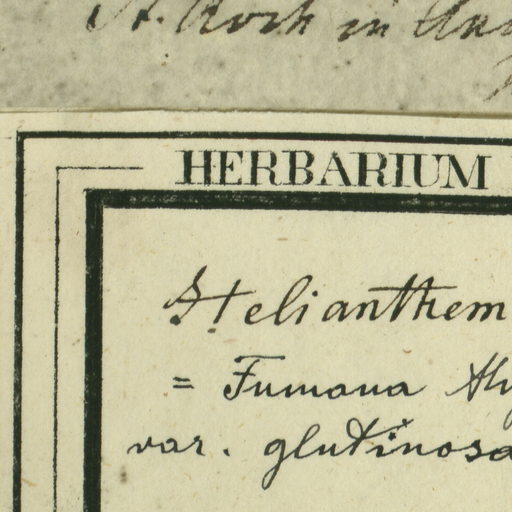 A. Koch in
HERBARIUM
Helianthem
= Fumana thy
var. glutinosa